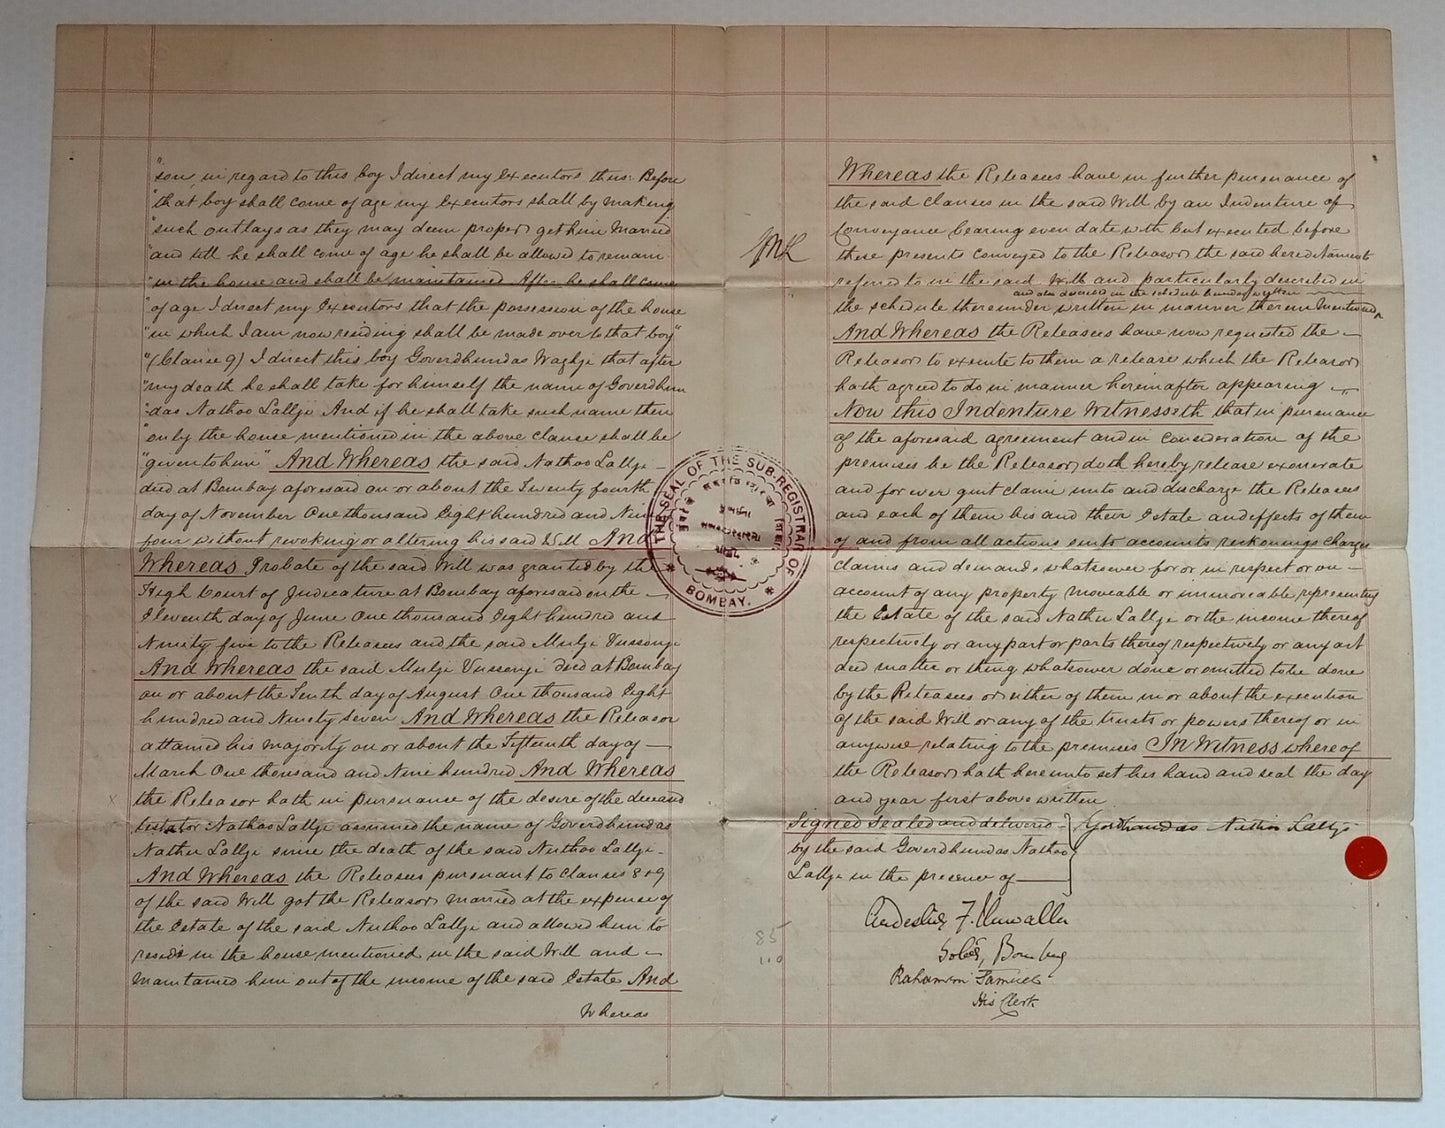 "son, in regard to this boy I direct my executors thus: Before
"that boy shall come of age my Executors shall by making
"such outlays as they may deem proper get him Married
"and till he shall come of age he shall be allowed to remain
"in the house and shall be maintained After he shall come
"of age I direct my Executors that the possession of the house
"in which I am now residing shall be made over to that boy"
"(Clause 9) I direct this boy Goverdhundas Waghje that after
"my death he shall take for himself the name of Goverdhun
"das Nathoo Lallje And if he shall take such name then
"only the house mentioned in the above clause shall be
"given to him" And Whereas the said Nathoo Lallje
died at Bombay aforesaid on or about the Twenty fourth
day of November One thousand Eight hundred and Nine
four without revoking or altering his said Will And
Whereas Probate of the said Will was granted by the
High Court of Judicature at Bombay aforesaid on the
Eleventh day of June One thousand Eight hundred and
Ninety five to the Releasees and the said Mulje Vussonje
And Whereas the said Mulje Vussonje died at Bombay
on or about the Tenth day of August One thousand Eight
hundred and Ninety Seven And Whereas the Releasor
attained his majority on or about the Fifteenth day of
March One thousand and Nine hundred And Whereas
the Releasor hath in pursuance of the desire of the deceased
testator Nathoo Lallje assumed the name of Goverdhundas
Nathu Lallje since the death of the said Nuthoo Lallje
And Whereas the Releasees pursuant to Clauses 8 & 9
of the said Will got the Releasor married at the expense of
the Estate of the said Nuthoo Lallje and allowed him to
reside in the house mentioned in the said Will and
maintained him out of the income of the said Estate And
Whereas
THE SEAL OF THE SUB-REGISTRAR OF
BOMBAY.
Whereas the Releasees have in further pursuance of
the said clauses in the said Will by an Indenture of
Conveyance bearing even date with but executed before
these presents conveyed to the Releasor the said hereditaments
referred to in the said Will and particularly described in
and also described in the schedule hereunder written
the schedule thereunder written in manner therein mentioned
And Whereas the Releasees have now requested the
Releasor to execute to them a release which the Releasor
hath agreed to do in manner hereinafter appearing
Now this Indenture Witnesseth that in pursuance
of the aforesaid agreement and in consideration of the
premises he the Releasor doth hereby release exonerate
and for ever quit claim unto and discharge the Releasees
and each of them his and their Estate and effects of them
of and from all actions suits accounts reckonings charges
claims and demands whatsoever for or in respect or on
account of any property moveable or immoveable representing
the Estate of the said Nathu Lallje or the income thereof
respectively or any part or parts thereof respectively or any act
deed matter or thing whatsoever done or omitted to be done
by the Releasees or either of them in or about the execution
of the said Will or any of the trusts or powers thereof or in
anywise relating to the premises In Witness whereof
the Releasor hath hereunto set his hand and seal the day
and year first above written
Signed Sealed and delivered
by the said Goverdhundas Nathoo
Lallje in the presence of
Gordhandas Nuthoo Lallje
Solrs, Bombay
Rahamim Samuel
His Clerk
85